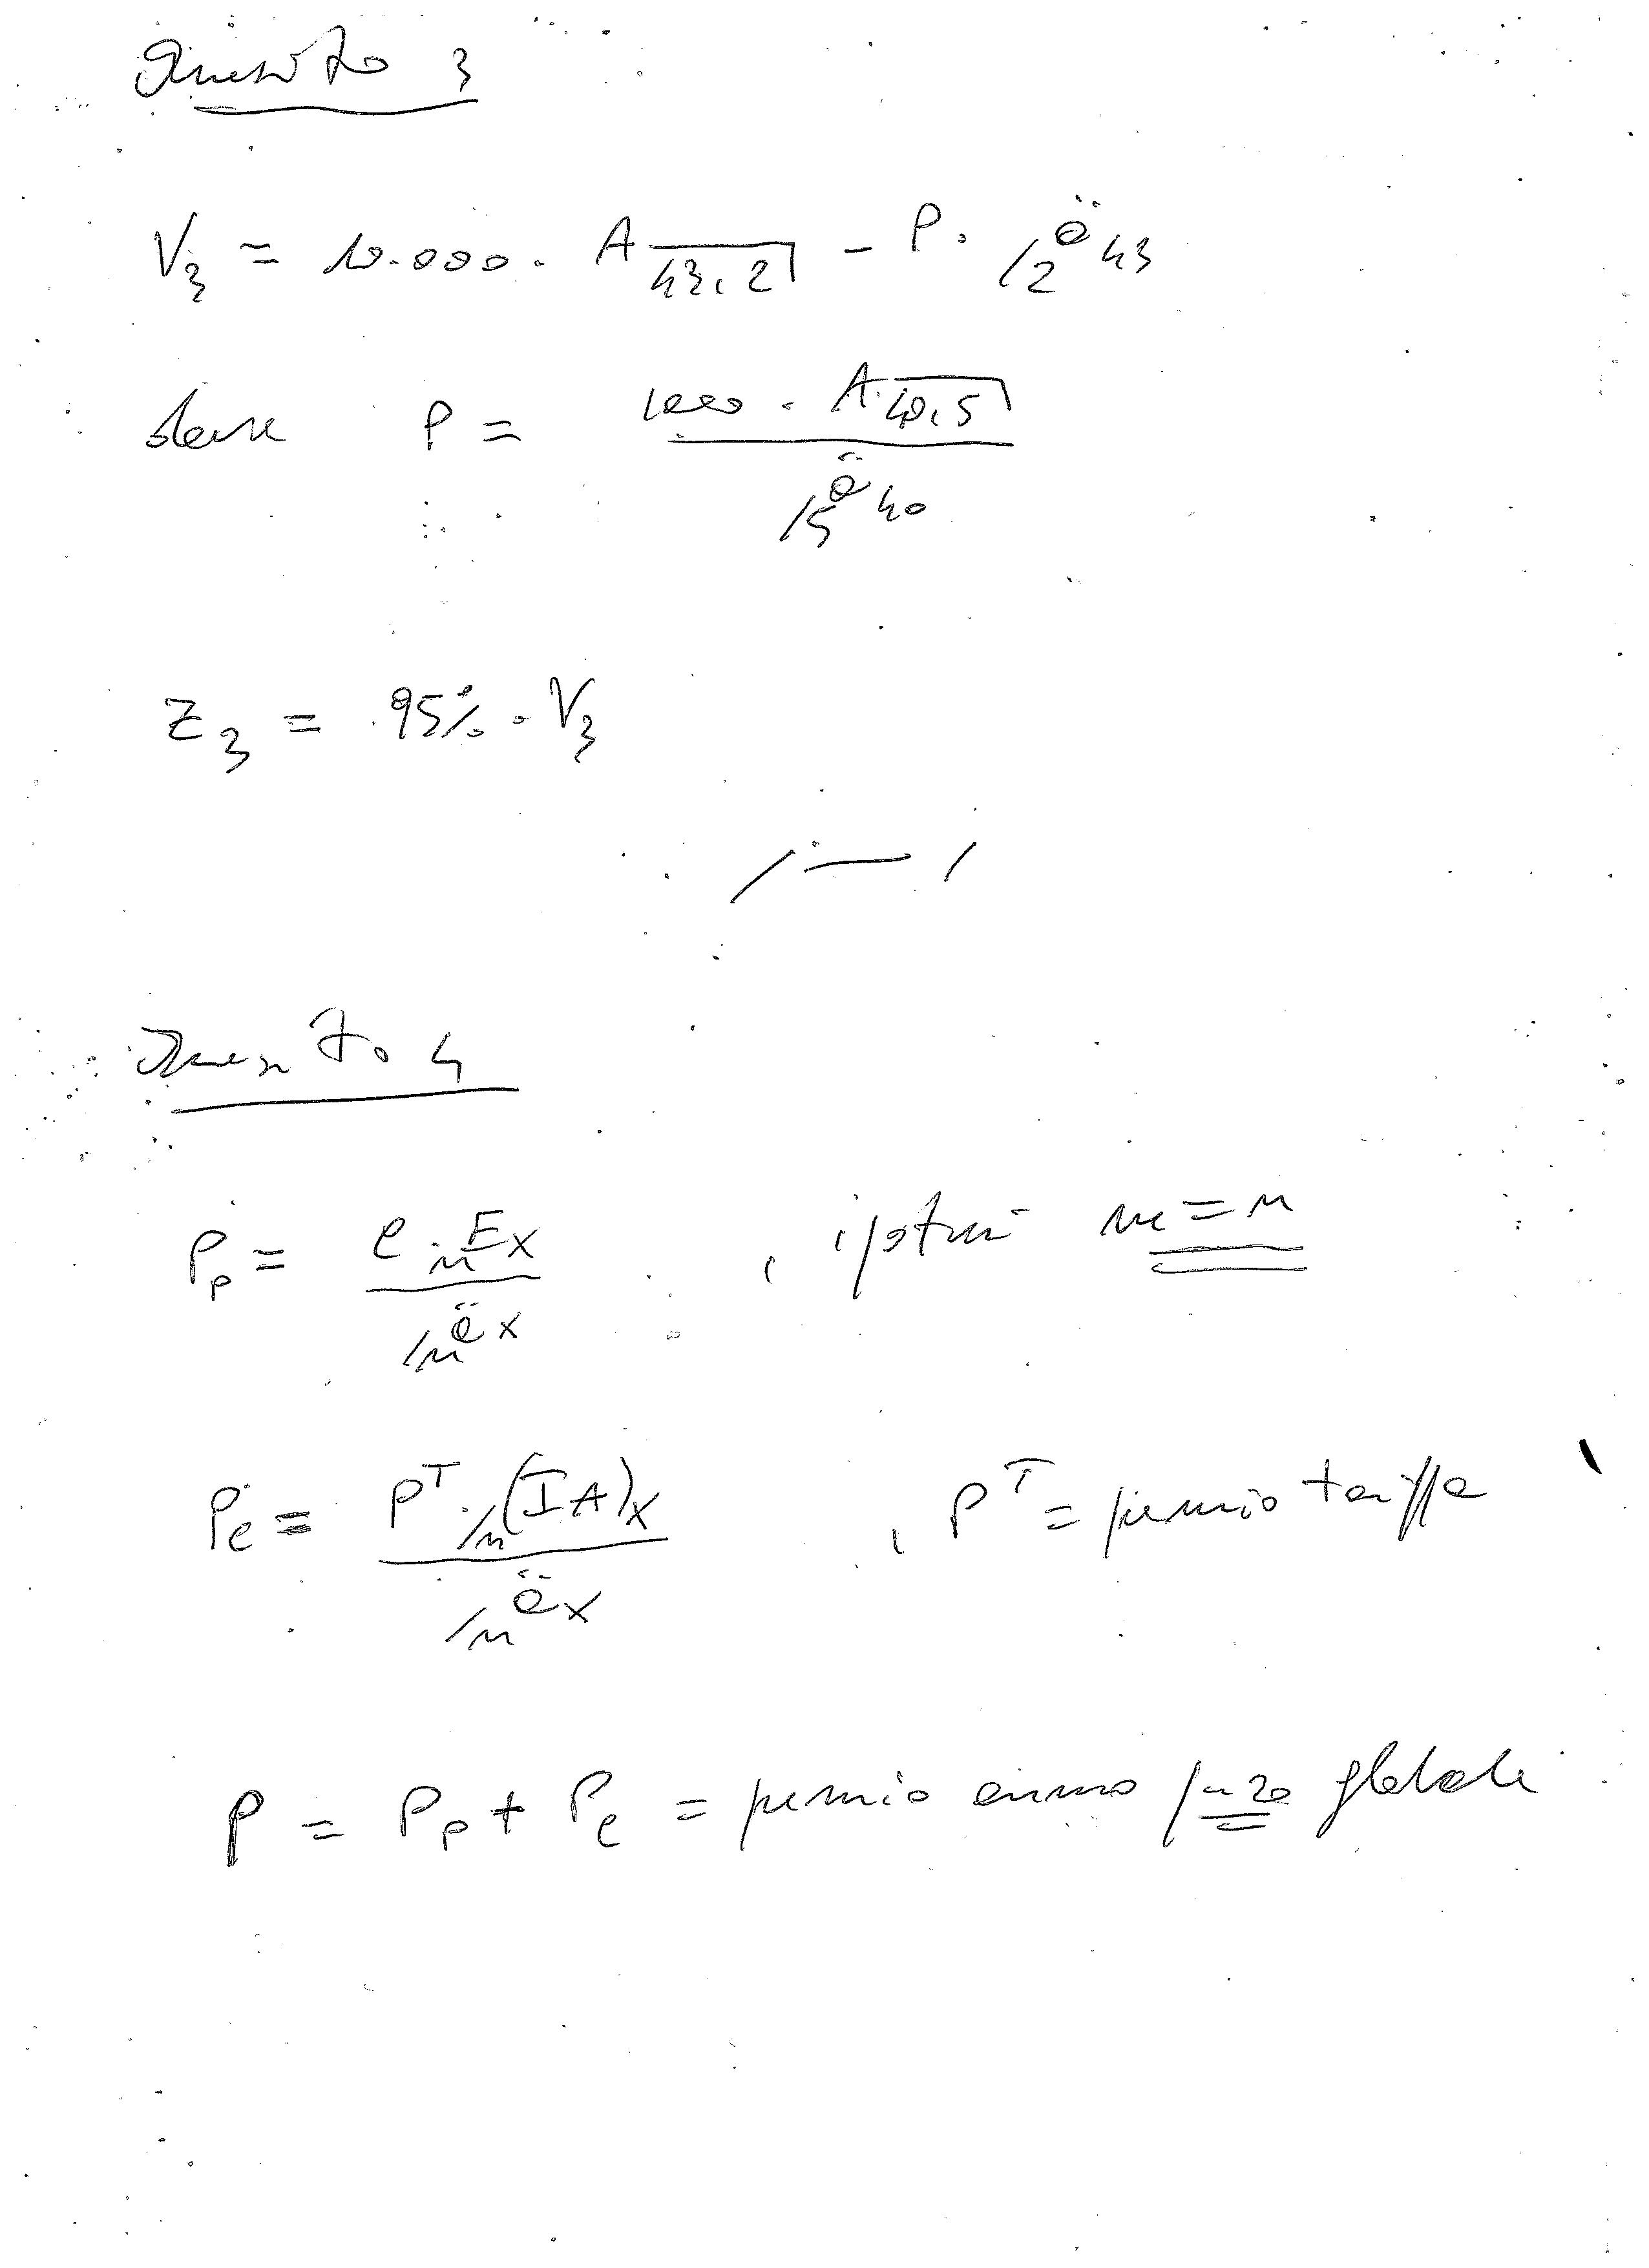 Quesito 3
V₃ = 10.000 · A 43,2⌉ − P · /2 ä 43
dove P = 1000 · A 40,5⌉ / /5 ä 40
Z₃ = 95% · V₃
Quesito 4
Pp = C · nEx / /n äx , ipotesi m = n
Pc = Pᵀ · /n(IA)x / /n äx , Pᵀ = premio tariffa
P = Pp + Pc = premio annuo puro globale